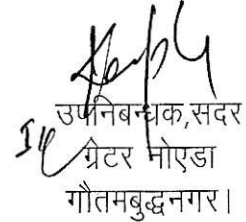 उपनिबन्धक,सदर
ग्रेटर नोएडा
गौतमबुद्धनगर।